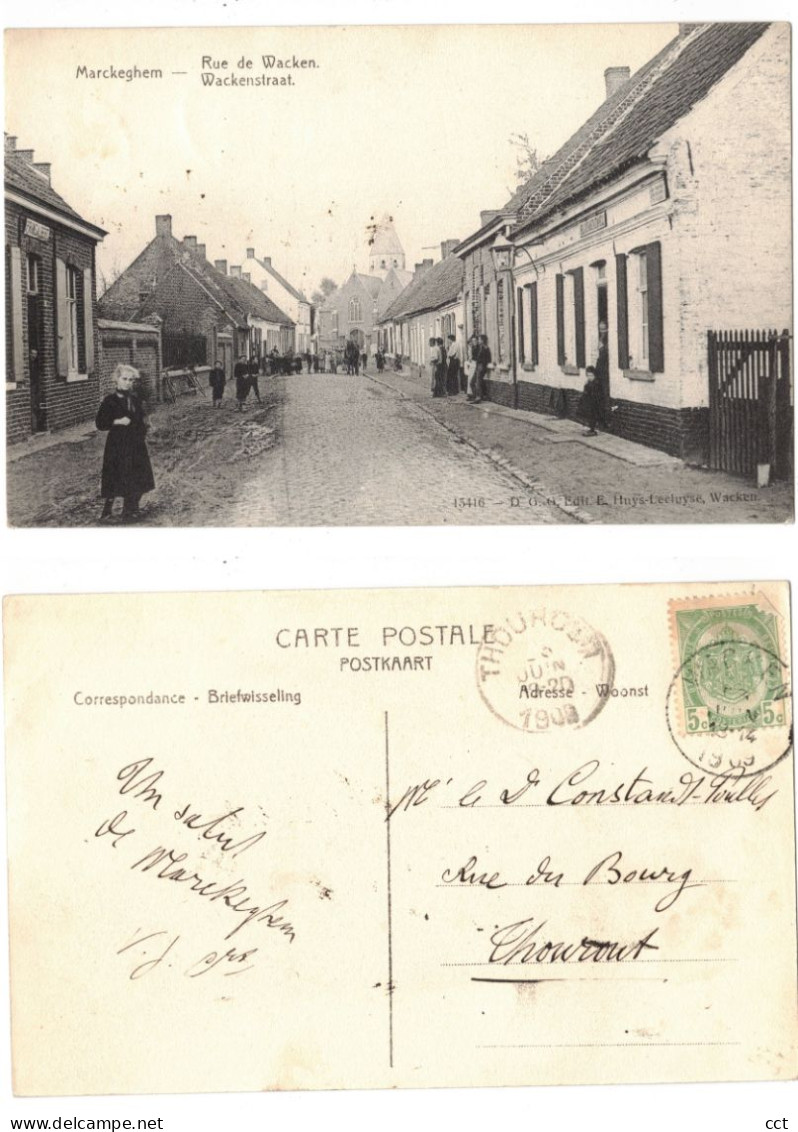 Marckeghem — Rue de Wacken.
Wackenstraat.
15416 - D. G. G. Edit. E. Huys-Lecluyse, Wacken.
CARTE POSTALE
POSTKAART
Correspondance - Briefwisseling
Adresse - Woonst
THOUROUT
JUIN
1909
5c 5c
1909
Un salut
de Marckeghem
Mr le Dr Constandt-
Rue du Bourg
Thourout
cct